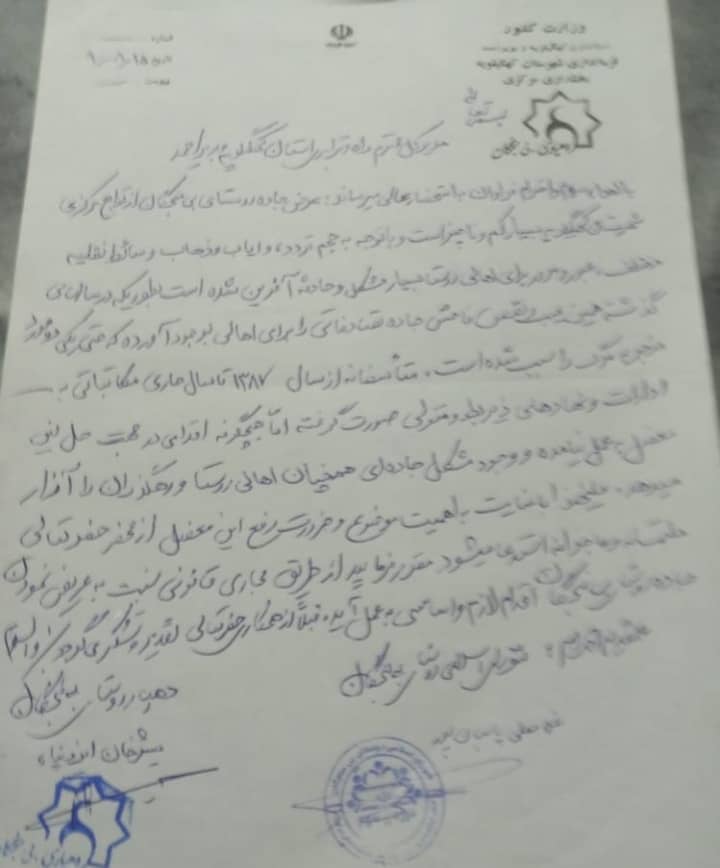 وزارت کشور
فرمانداری شهرستان کهگیلویه
بخشداری مرکزی
شماره
بسمه تعالی
مدیرکل محترم راه و ترابری استان کهگیلویه و بویراحمد
با سلام و احترام فراوان به استحضار عالی میرساند: عرض جاده روستای از توابع مرکزی
کهگیلویه بسیار کم و ناچیز است و با توجه به حجم تردد و ایاب و ذهاب وسائط نقلیه
مختلف، عبور و مرور برای اهالی روستا بسیار مشکل و حادثه آفرین شده است بطوریکه در سالهای
گذشته همین عیب و نقص فاحش جاده تصادفاتی را برای اهالی بوجود آورده که حتی یکی دو مورد
منجر به مرگ را سبب شده است. متأسفانه از سال ۱۳۸۷ تا سال جاری مکاتباتی به
ادارات و نهادهای ذیربط و متولی صورت گرفته اما هیچگونه اقدامی در جهت حل این
معضل به عمل نیامده و وجود مشکل جاده‌ای همچنان اهالی روستا و رهگذران را آزار
میدهد. علیهذا با عنایت به اهمیت موضوع و ضرورت رفع این معضل از محضر حضرتعالی
ملتمسانه و عاجزانه استدعا میشود مقرر فرمایید از طریق مجاری قانونی نسبت به عریض نمودن
جاده روستای اقدام لازم و اساسی به عمل آید. قبلاً از همکاری حضرتعالی تقدیر و تشکر می‌گردد. والسلام
شورای اسلامی روستای
دهیار روستای